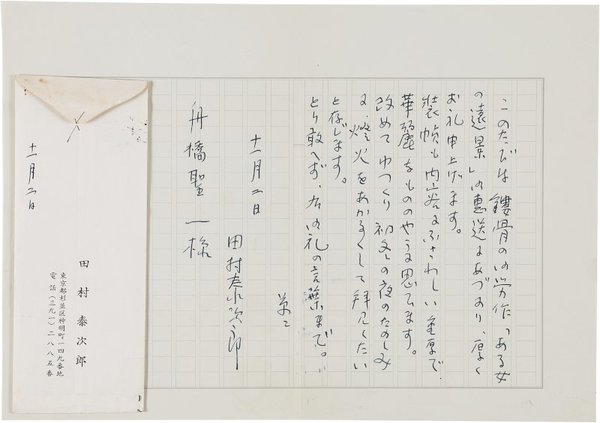 このたびは 鏤骨の御労作「ある女
の遠景」御恵送にあづかり、厚く
お礼申上げます。
装幀も内容にふさわしい重厚で
華麗なもののやうに思へます。
改めてゆつくり初冬の夜のたのしみ
に、燈火をあかるくして拝見したい
と存じます。
とり敢へず、右御礼の言葉まで。
草々
十一月二日
田村泰次郎
舟橋聖一様
十一月二日
田村泰次郎
東京都杉並区神明町一四九番地
電話(三九一)二八八五番